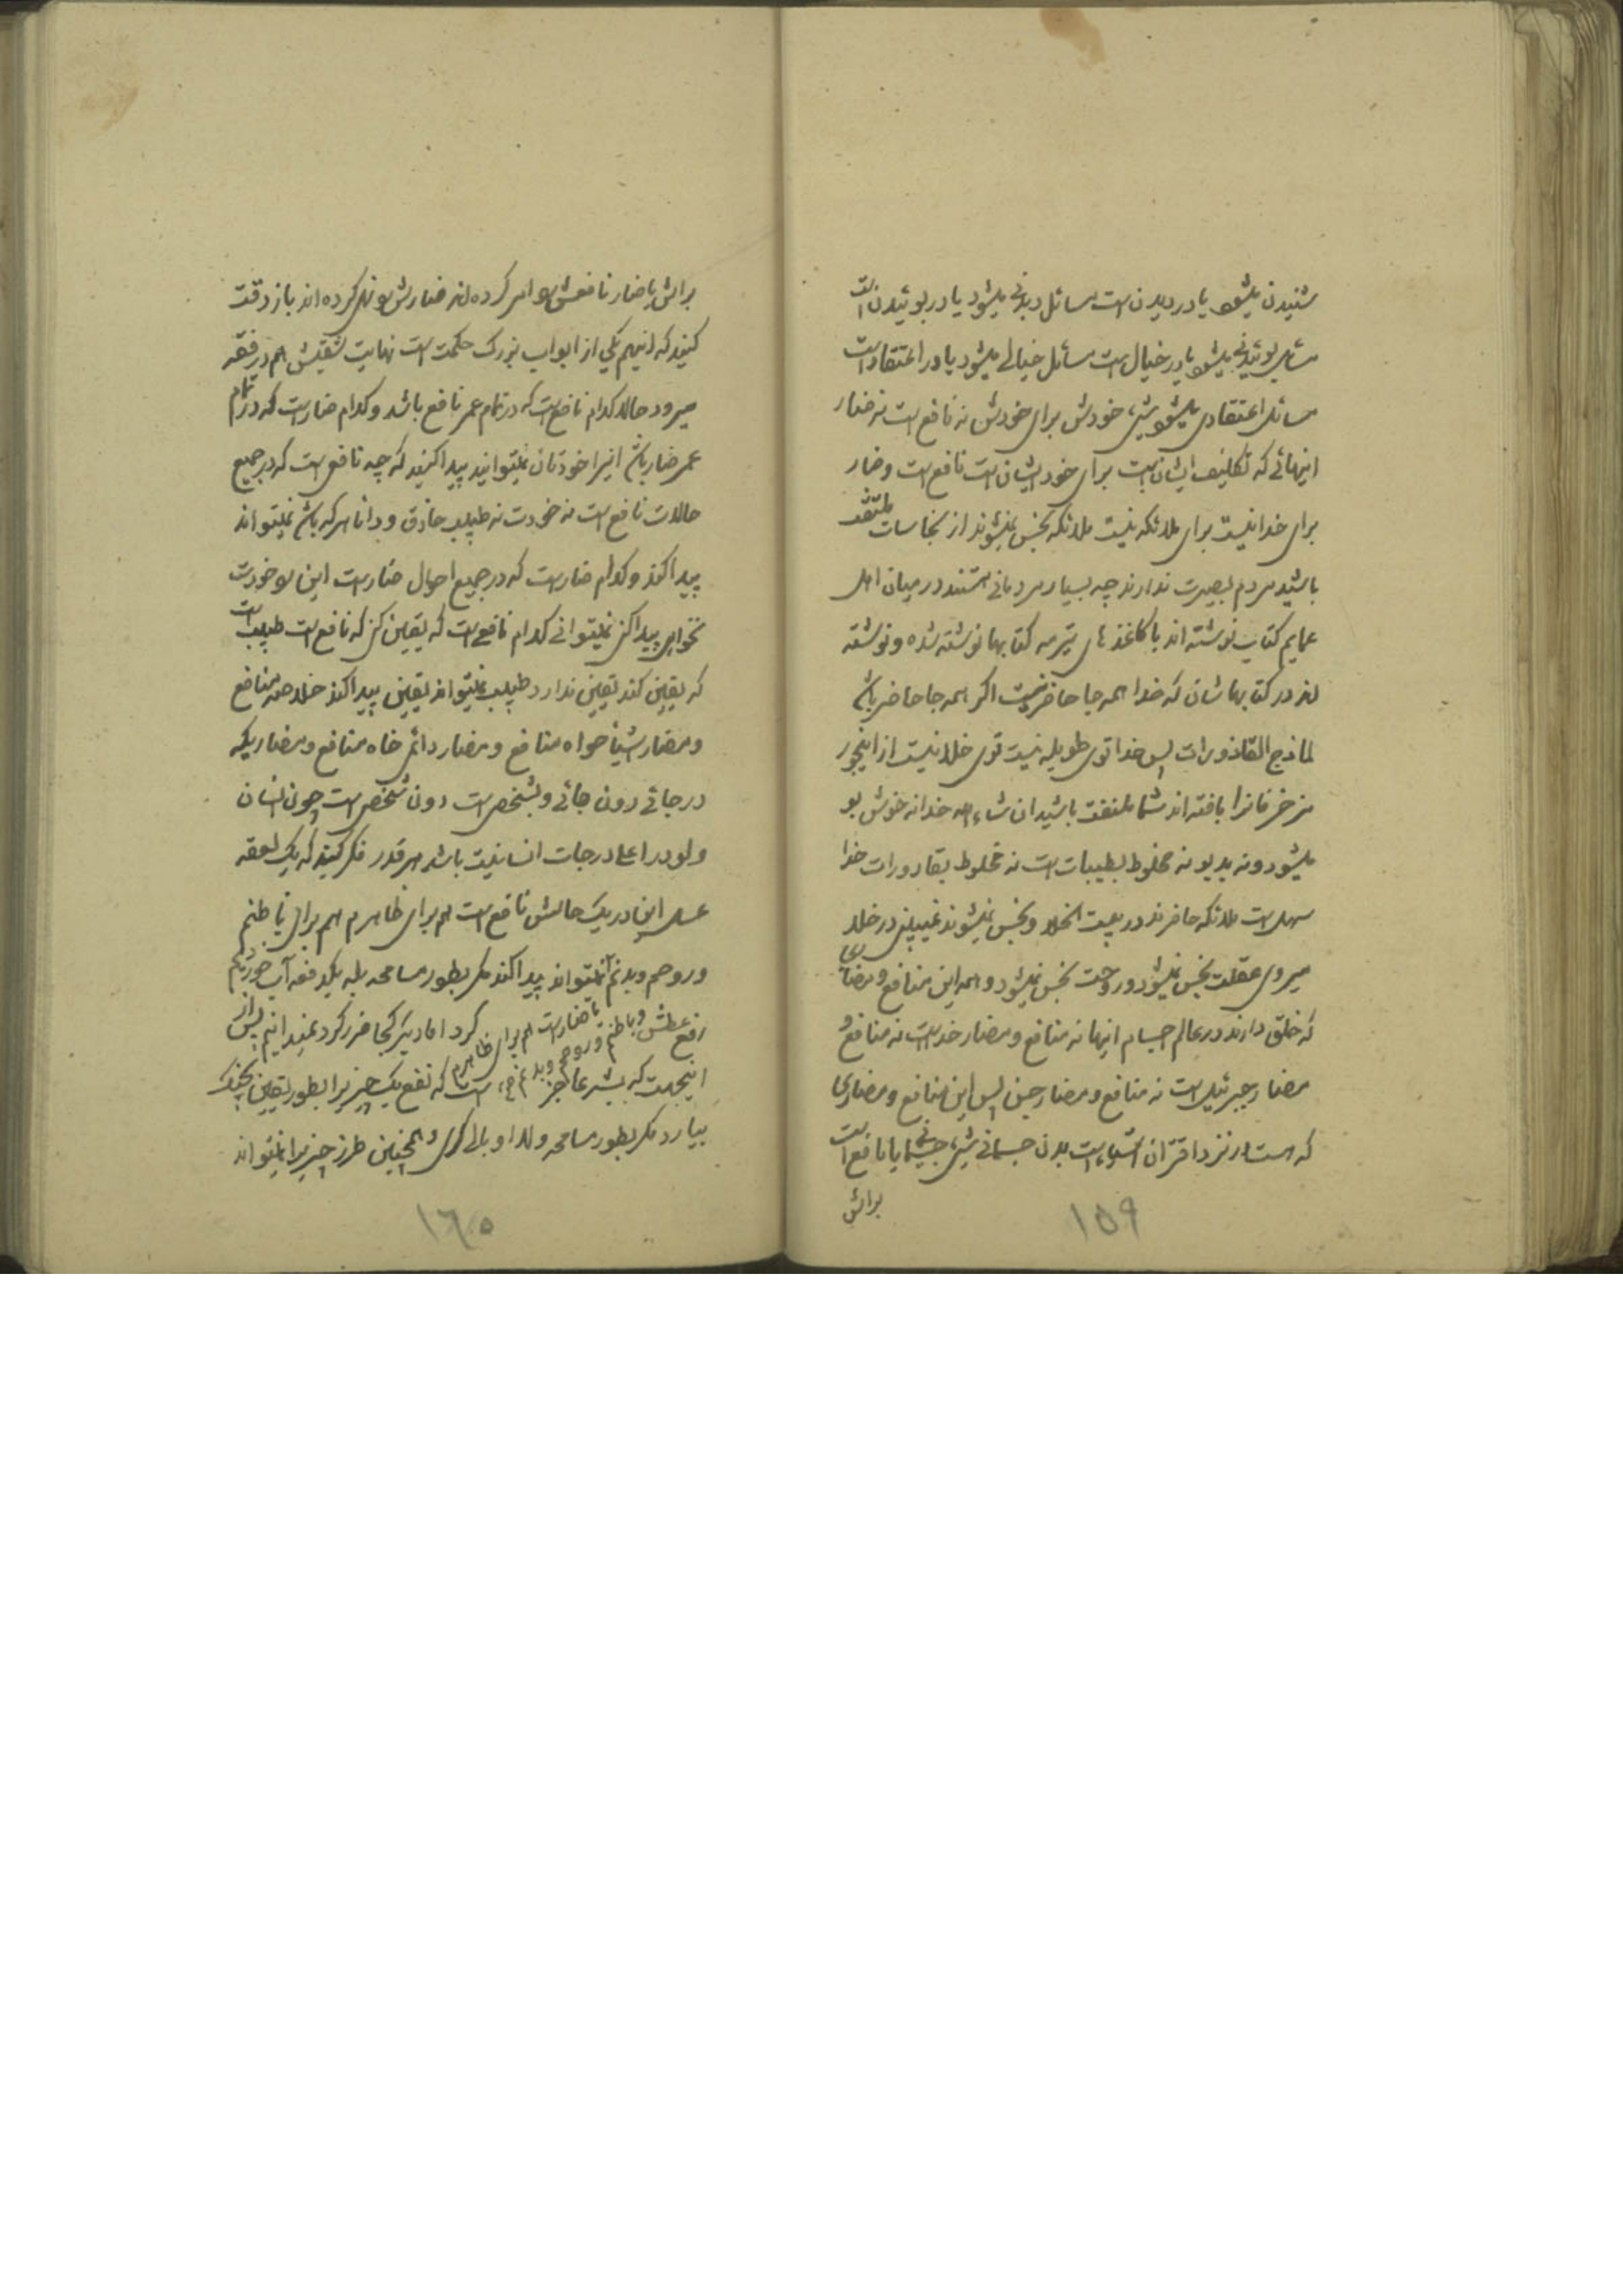 شنیدن میشود یا در دیدن است مسائل دیدنی میشود یا در بوئیدن است
مسائل بوئیدنی میشود یا در خیال است مسائل خیالی میشود یا در اعتقاد است
مسائل اعتقادی میشود شیء خودش برای خودش نه نافع است نه ضار
اینهائی که تکالیف ایشان است برای خود ایشان است نافع است و ضار
برای خدا نیست برای ملائکه نیست ملائکه نجس نمیشوند از نجاسات ملتفت
باشید مردم بصیرت ندارند چه بسیار مردمانی هستند در میان اهل
عمایم کتاب نوشته اند با کاغذ های ترمه کتابها نوشته شده و نوشته
اند در کتابهاشان که خدا همه جا حاضر نیست اگر همه جا حاضر باشد
لمازج القاذورات پس خدا توی طویله نیست توی خلا نیست از اینجور
مزخرفات را بافته اند شما ملتفت باشید ان شاء الله خدا نه خوش بو
میشود و نه بد بو نه مخلوط بطیبات است نه مخلوط بقاذورات خدا
سهل است ملائکه حاضرند در بیت الخلا و نجس نمیشوند نمیبینی در خلا
میروی عقلت نجس نمیشود و روحت نجس نمیشود و همه این منافع و مضاری
که خلق دارند در عالم اجسام اینها نه منافع و مضار خداست نه منافع و
مضار جبرئیل است نه منافع و مضار جن پس این منافع و مضاری
که هست در نزد اقتران اشیاء است بدن جسمانی شیء جسمانی یا نافع است
برائش
۱۵۹
برائش یا ضار نافعش را امر کرده اند ضارش را نهی کرده اند باز دقت
کنید که اینهم یکی از ابواب بزرگ حکمت است نهایت شقیش هم در فقه
میرود حالا کدام نافع است که در تمام عمر نافع باشد و کدام ضار است که در تمام
عمر ضار باشد اینرا خودتان نمیتوانید پیدا کنید که چه نافع است که در جمیع
حالات نافع است نه خودت نه طبیب حاذق و دانا هر که باشد نمیتواند
پیدا کند و کدام ضار است که در جمیع احوال ضار است این را خودت
بخواهی پیدا کنی نمیتوانی کدام نافع است که یقین کنی که نافع است طبیب است
که یقین کند یقین ندارد طبیب نمیتواند یقین پیدا کند خلاصه منافع
و مضار اشیا خواه منافع و مضار دائمی خاه منافع و مضاریکه
در جائی دون جائی و بشخصی است دون شخصی است چون انسان
ولو در اعلا درجات انسانیت باشد هر قدر فکر کنید که یک لعقه
عسل این در یک حالش نافع است هم برای ظاهرم هم برای باطنم
و روحم و بدنم نمیتواند پیدا کند مگر بطور مسامحه بله یکدفعه آب خوردیم
رفع عطش کرد اما دیگر کجا ضرر کرد نمیدانیم پس از
و باطنم و روحم و بدنم یا ضار است هم برای ظاهرم
اینجهت که بشر عاجز است که نفع یک چیزیرا بطور یقین بچنگ
بیارد مگر بطور مسامحه ولدا و بالی گری و همچنین ضرر چیزیرا نمیتواند
۱۶۰